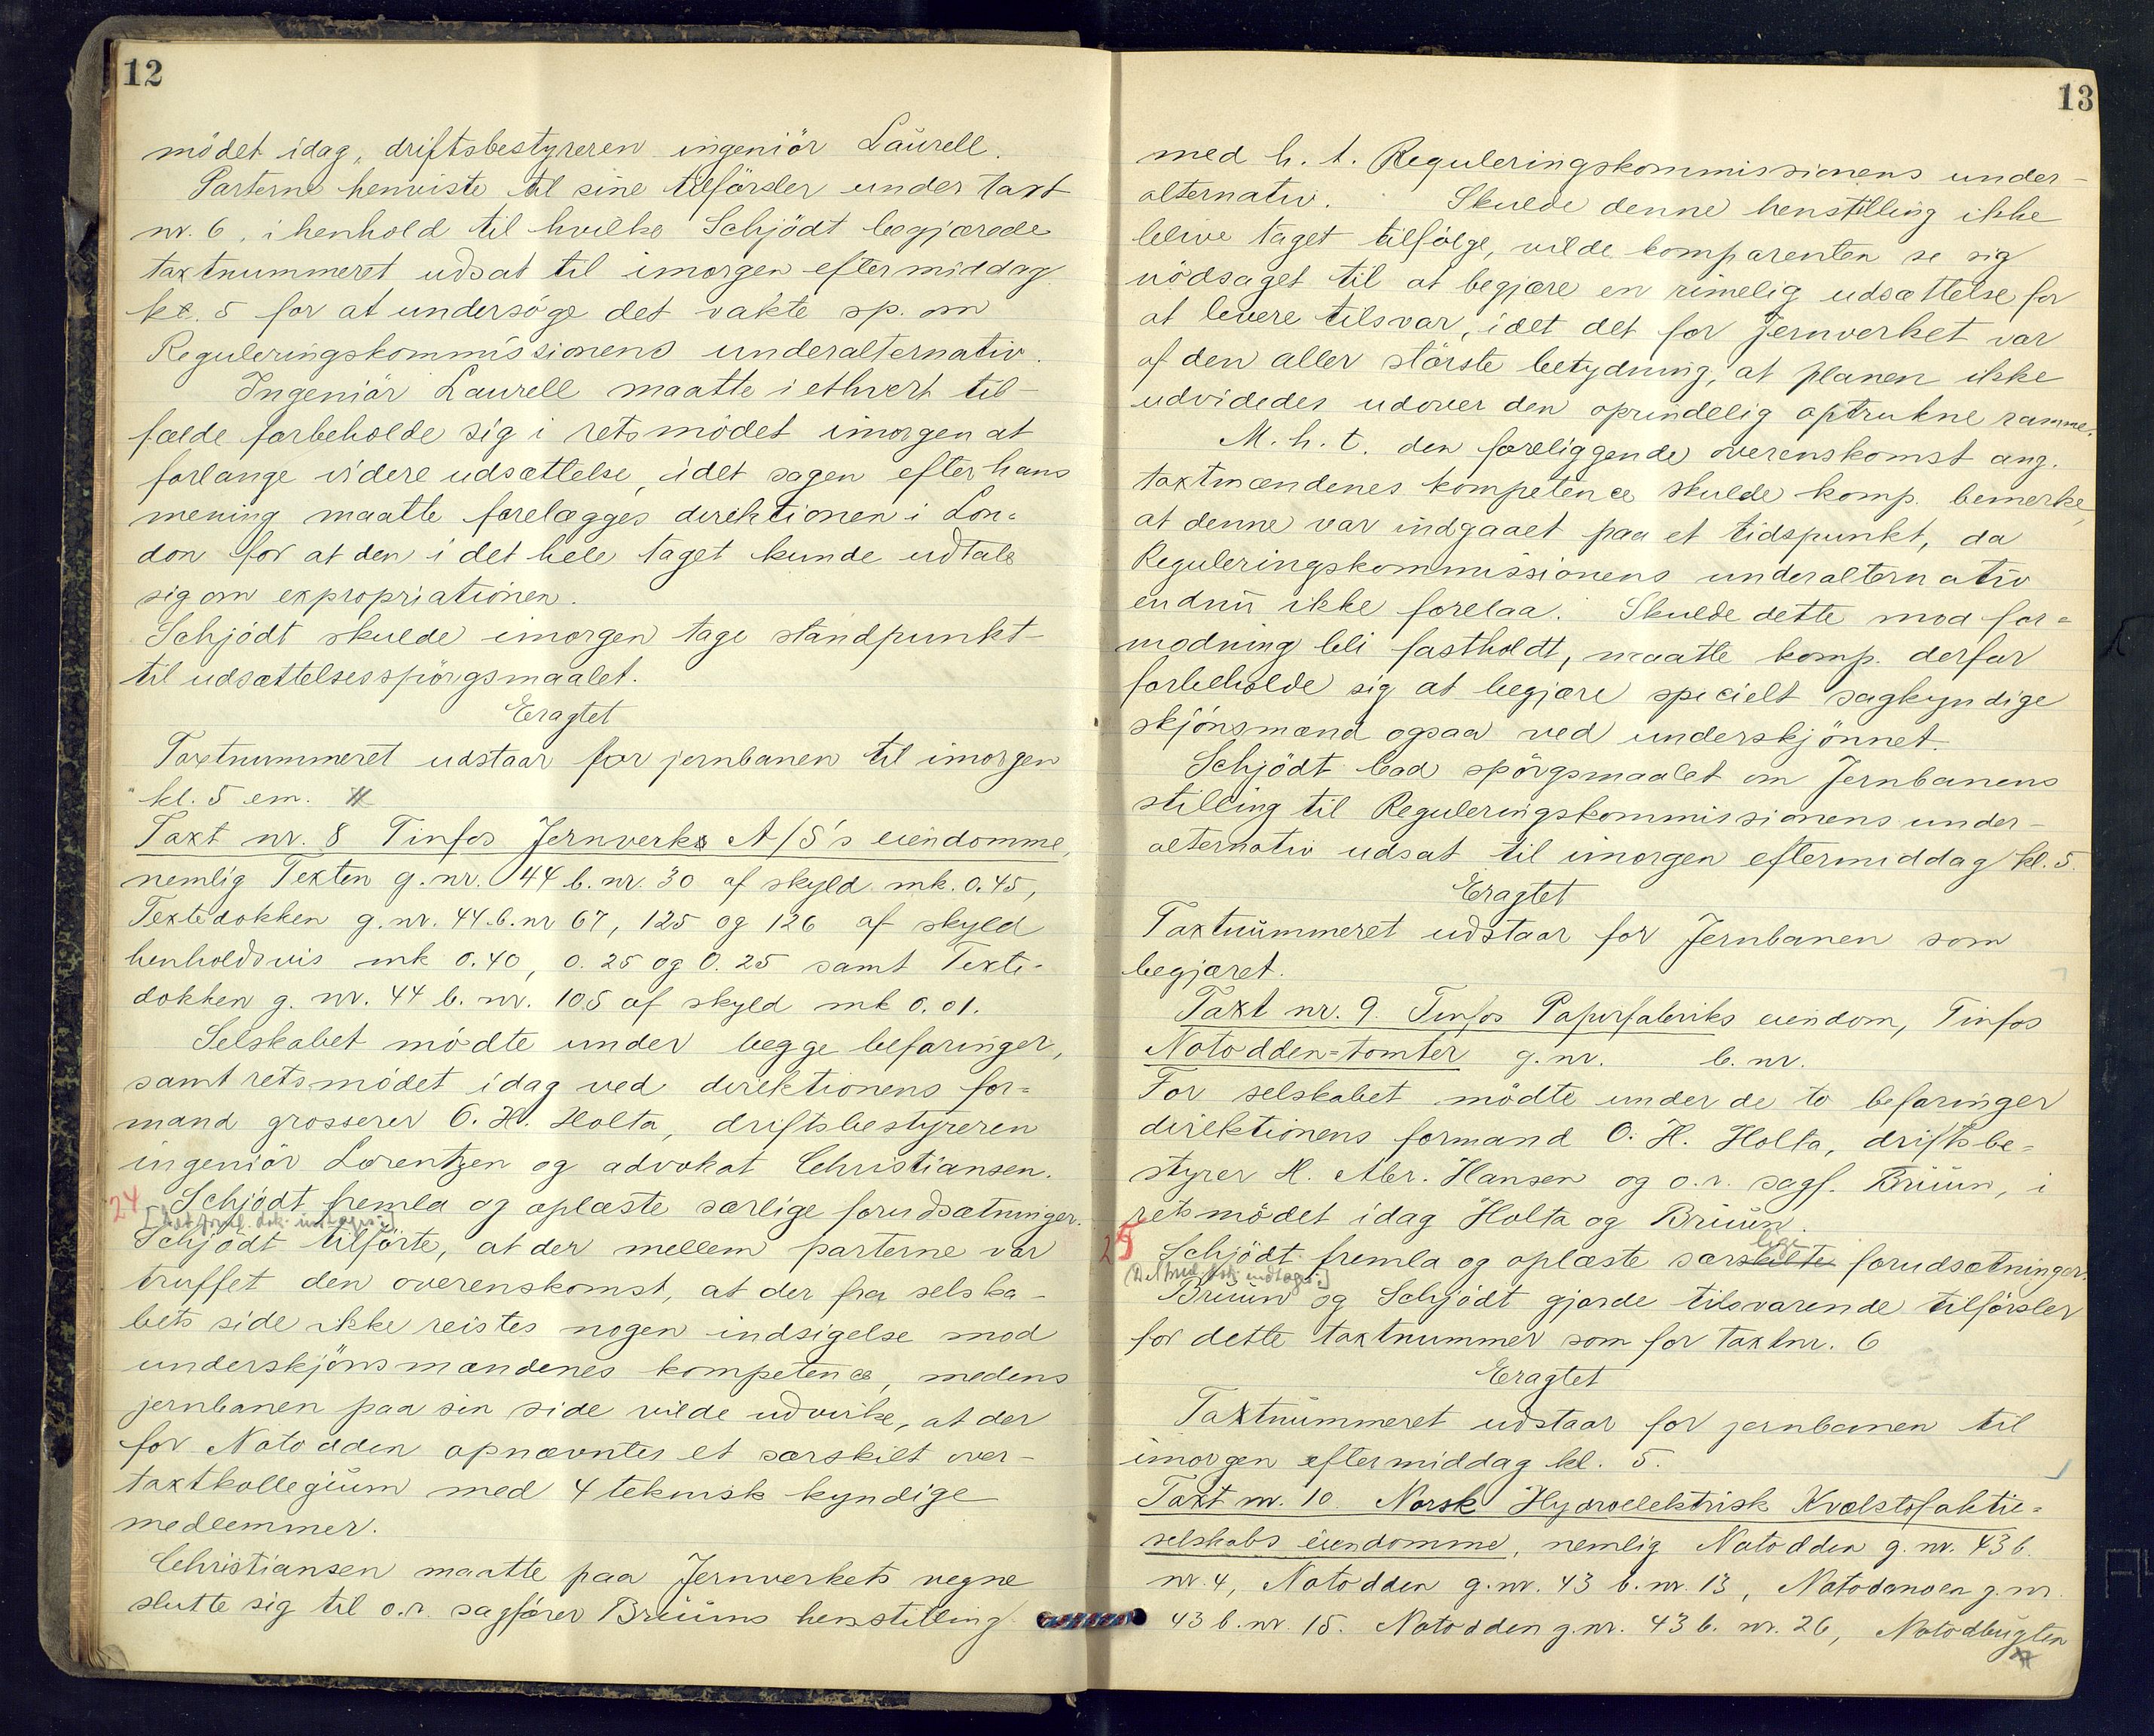 12
mödet idag, driftsbestyreren ingeniör Laurell.
Parterne henviste til sine tilförsler under taxt
nr. 6, i henhold til hvilke Schjödt begjærede
taxtnummeret udsat til imorgen eftermiddag
kl. 5 for at undersöge det vakte sp. om
Reguleringskommissionens underalternativ.
Ingeniör Laurell maatte i ethvert til-
fælde forbeholde sig i retsmödet imorgen at
forlange videre udsættelse, idet sagen efter hans
mening maatte forelægges direktionen i Lon-
don for at den i det hele taget kunde udtale
sig om expropriationen.
Schjödt skulde imorgen tage standpunkt
til udsættelsesspörgsmaalet.
Eragtet
Taxtnummeret udstaar for jernbanen til imorgen
kl. 5 em.
Taxt nr. 8 Tinfos Jernverks A/S's eiendomme,
nemlig Texten g. nr. 44 b. nr. 30 af skyld mk. 0.45,
Textedokken g. nr. 44 b. nr 67, 125 og 126 af skyld
henholdsvis mk 0.40, 0.25 og 0.25 samt Texte-
dokken g. nr. 44 b. nr. 105 af skyld mk 0.01.
Selskabet mödte under begge befaringer,
samt retsmödet idag ved direktionens for-
mand grosserer O. H. Holta, driftsbestyreren
ingeniör Lorentzen og advokat Christiansen.
24 Schjödt fremla og oplæste særlige forudsætninger.
Schjödt tilförte, at der mellem parterne var
truffet den overenskomst, at der fra selska-
bets side ikke reistes nogen indsigelse mod
underskjönsmændenes kompetence, medens
jernbanen paa sin side vilde udvirke, at der
for Notodden opnævntes et særskilt over-
taxtkollegium med 4 teknisk kyndige
medlemmer.
Christiansen maatte paa Jernverkets vegne
slutte sig til o.r. sagförer Bruuns henstilling
13
med h. t. Reguleringskommissionens under-
alternativ. Skulde denne henstilling ikke
blive taget tilfölge, vilde komparenten se sig
nödsaget til at begjære en rimelig udsættelse for
at levere tilsvar, idet det for Jernverket var
af den aller störste betydning, at planen ikke
udvidedes udover den oprindelig optrukne ramme.
M. h. t. den foreliggende overenskomst ang.
taxtmændenes kompetence skulde komp. bemerke,
at denne var indgaaet paa et tidspunkt, da
Reguleringskommissionens underalternativ
endnu ikke forelaa. Skulde dette mod for-
modning bli fastholdt, maatte komp. derfor
forbeholde sig at begjære specielt sagkyndige
skjönsmænd ogsaa ved underskjönnet.
Schjödt bad spörgsmaalet om Jernbanens
stilling til Reguleringskommissionens under-
alternativ udsat til imorgen eftermiddag kl. 5.
Eragtet
Taxtnummeret udstaar for Jernbanen som
begjæret.
Taxt nr. 9. Tinfos Papirfabriks eiendom, Tinfos
Notodden-tomter g. nr. b. nr.
For selskabet mödte under de to befaringer
direktionens formand O. H. Holta, driftsbe-
styrer H. Abr. Hansen og o. r. sagf. Bruun, i
retsmödet idag Holta og Bruun.
lige
25 Schjödt fremla og oplæste særskilte forudsætninger.
Bruun og Schjödt gjorde tilsvarende tilförsler
for dette taxtnummer som for taxtnr. 6
Eragtet
Taxtnummeret udstaar for jernbanen til
imorgen eftermiddag kl. 5.
Taxt nr. 10. Norsk Hydroelektrisk Kvælstofaktie-
selskabs eiendomme, nemlig Notodden g. nr. 43 b.
nr. 4, Notodden g. nr. 43 b. nr. 13, Notodden g. nr.
43 b. nr. 15. Notodden g. nr. 43 b. nr. 26, Notodbugten